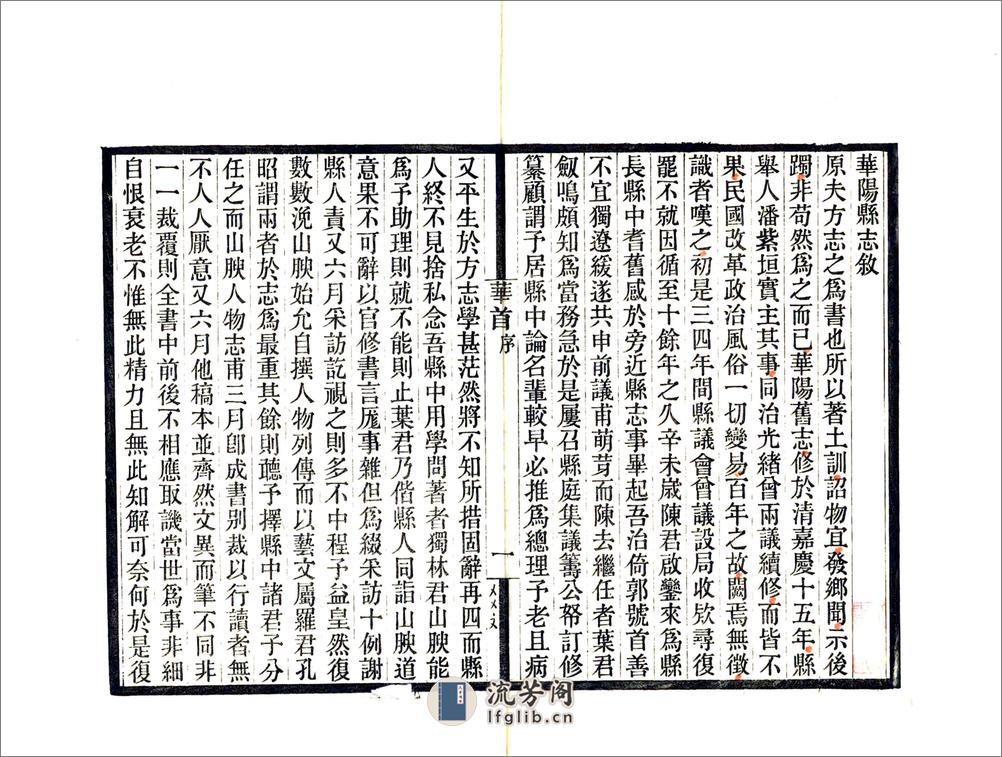 華陽縣志敘
原夫方志之爲書也所以著土訓詔物宜發鄉聞示後
躅非苟然爲之而已華陽舊志修於清嘉慶十五年縣
舉人潘紫垣實主其事同治光緒曾兩議續修而皆不
果民國改革政治風俗一切變易百年之故闕焉無徵
識者嘆之初是三四年間縣議會曾議設局收欵尋復
罷不就因循至十餘年之久辛未歲陳君啟鑾來爲縣
長縣中耆舊感於旁近縣志事畢起吾治倚郭號首善
不宜獨遼緩遂共申前議甫萌芽而陳去繼任者葉君
劔鳴頗知爲當務急於是屢召縣庭集議籌公帑訂修
纂顧謂予居縣中論名輩較早必推爲總理予老且病
華首
序
一
又平生於方志學甚茫然將不知所措固辭再四而縣
人終不見捨私念吾縣中用學問著者獨林君山腴能
爲予助理則就不能則止葉君乃偕縣人同詣山腴道
意果不可辭以官修書言厖事雜但爲綴采訪十例謝
縣人責又六月采訪訖視之則多不中程予益皇然復
數數浼山腴始允自撰人物列傳而以藝文屬羅君孔
昭謂兩者於志爲最重其餘則聽予擇縣中諸君子分
任之而山腴人物志甫三月卽成書別裁以行讀者無
不人人厭意又六月他稿本並齊然文異而筆不同非
一一裁覆則全書中前後不相應取譏當世爲事非細
自恨衰老不惟無此精力且無此知解可奈何於是復
流芳阁
lfglib.cn